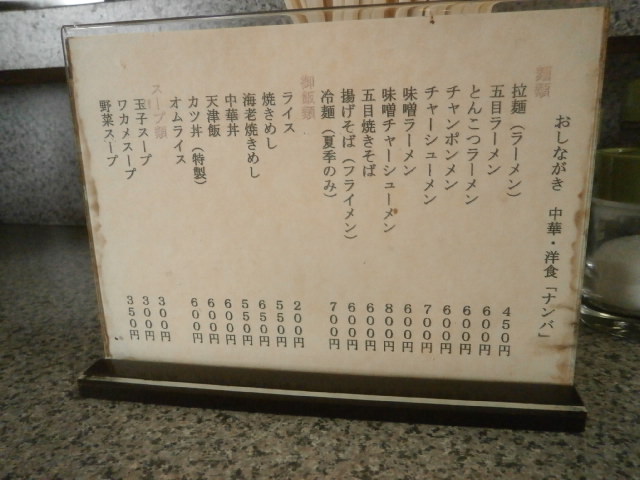 おしながき 中華・洋食「ナンバ」
麺類
拉麺（ラーメン） 450円
五目ラーメン 600円
とんこつラーメン 600円
チャンポンメン 600円
チャーシューメン 700円
味噌ラーメン 600円
味噌チャーシューメン 800円
五目焼きそば 600円
揚げそば（フライメン） 600円
冷麺（夏季のみ） 700円
御飯類
ライス 200円
焼きめし 550円
海老焼きめし 650円
中華丼 550円
天津飯 600円
カツ丼（特製） 600円
オムライス 600円
スープ類
玉子スープ 300円
ワカメスープ 300円
野菜スープ 350円